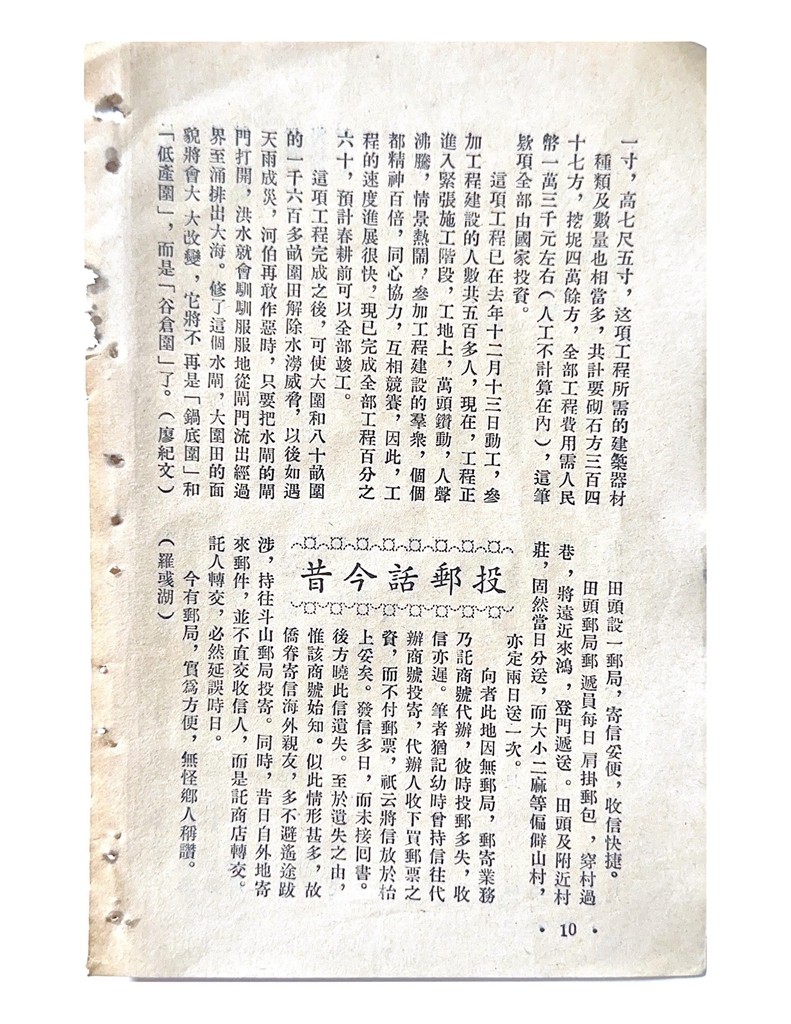 一寸，高七尺五寸，这項工程所需的建築器材
種類及數量也相當多，共計要砌石方三百四
十七方，挖坭四萬餘方，全部工程費用需人民
幣一萬三千元左右（人工不計算在內），這筆
欵項全部由國家投資。
這項工程已在去年十二月十三日動工，參
加工程建設的人數共五百多人，現在，工程正
進入緊張施工階段，工地上，萬頭鑽動，人聲
沸騰，情景熱鬧，參加工程建設的羣衆，個個
都精神百倍，同心協力，互相競賽，因此，工
程的速度進展很快，現已完成全部工程百分之
六十，預計春耕前可以全部竣工。
這項工程完成之後，可使大圍和八十畝圍
的一千六百多畝圍田解除水澇威脅，以後如遇
天雨成災，河伯再敢作惡時，只要把水閘的閘
門打開，洪水就會馴馴服服地從閘門流出經過
界至涌排出大海。修了這個水閘，大圍田的面
貌將會大大改變，它將不再是「鍋底圍」和
「低產圍」，而是「谷倉圍」了。（廖紀文）
投郵話今昔
田頭設一郵局，寄信妥便，收信快捷。
田頭郵局郵遞員每日肩掛郵包，穿村過
巷，將遠近來鴻，登門遞送。田頭及附近村
莊，固然當日分送，而大小二麻等偏僻山村，
亦定兩日送一次。
向者此地因無郵局，郵寄業務
乃託商號代辦，彼時投郵多失，收
信亦遲。筆者猶記幼時曾持信往代
辦商號投寄，代辦人收下買郵票之
資，而不付郵票，祇云將信放於枱
上妥矣。發信多日，而未接回書。
後方曉此信遺失。至於遺失之由，
惟該商號始知。似此情形甚多，故
僑眷寄信海外親友，多不避遙途跋
涉，持往斗山郵局投寄。同時，昔日自外地寄
來郵件，並不直交收信人，而是託商店轉交。
託人轉交，必然延誤時日。
今有郵局，實爲方便，無怪鄉人稱讚。
（羅彧湖）
·10·